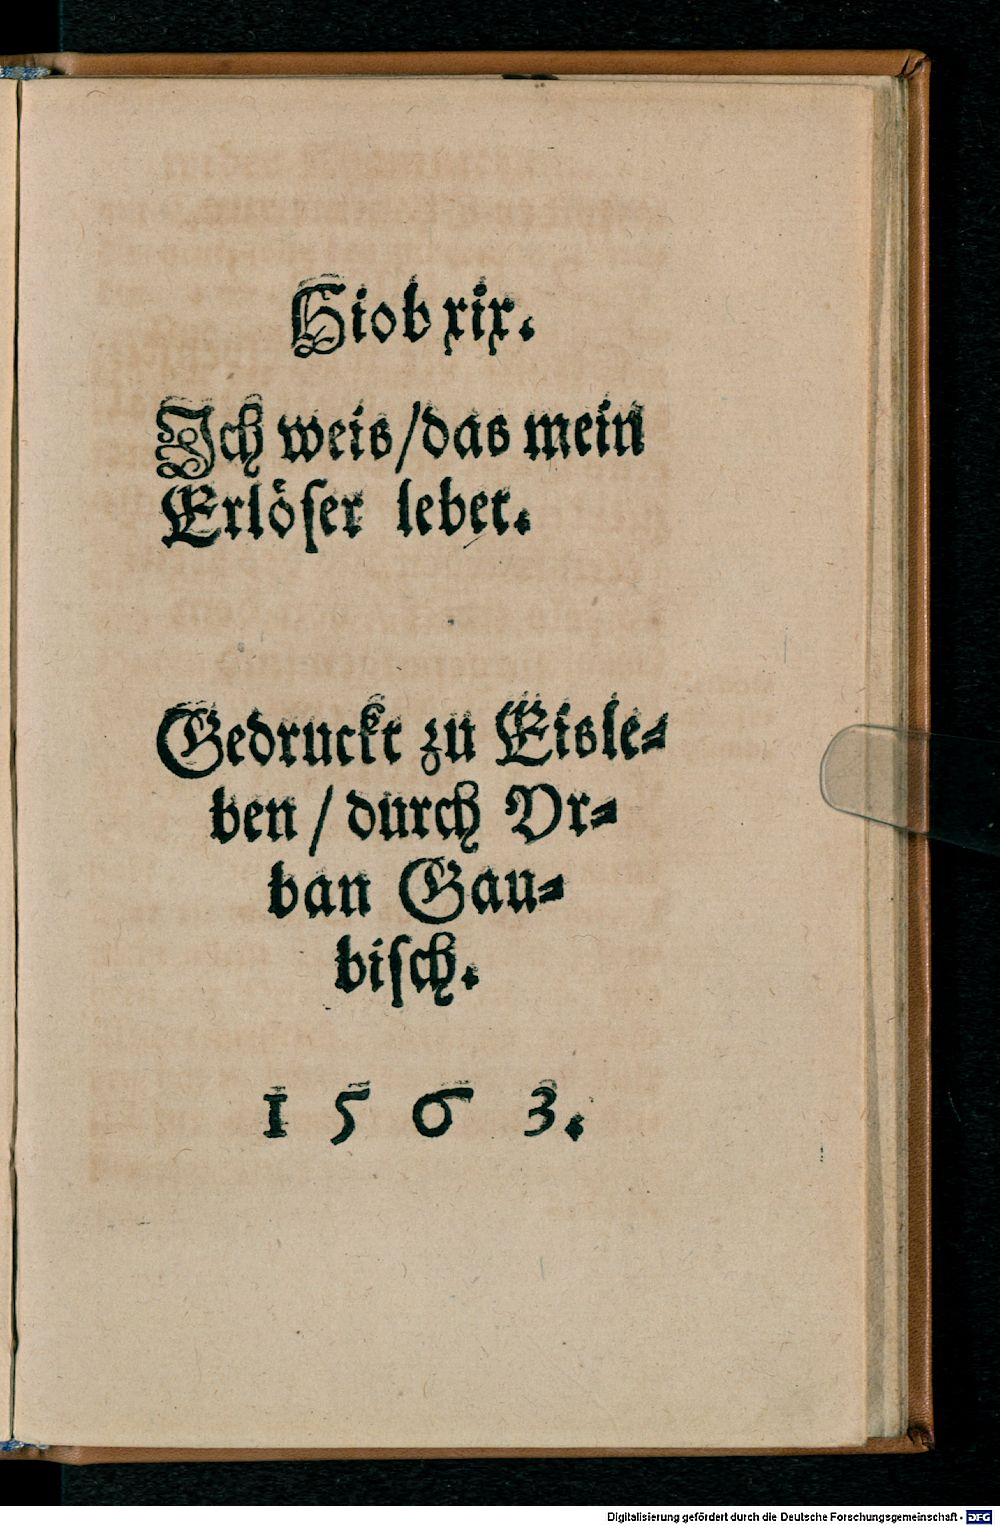 Hiob xix.
Ich weis/das mein
Erlöser lebet.
Gedruckt zu Eisle-
ben / durch Vr-
ban Gau-
bisch.
1563.
Digitalisierung gefördert durch die Deutsche Forschungsgemeinschaft - DFG